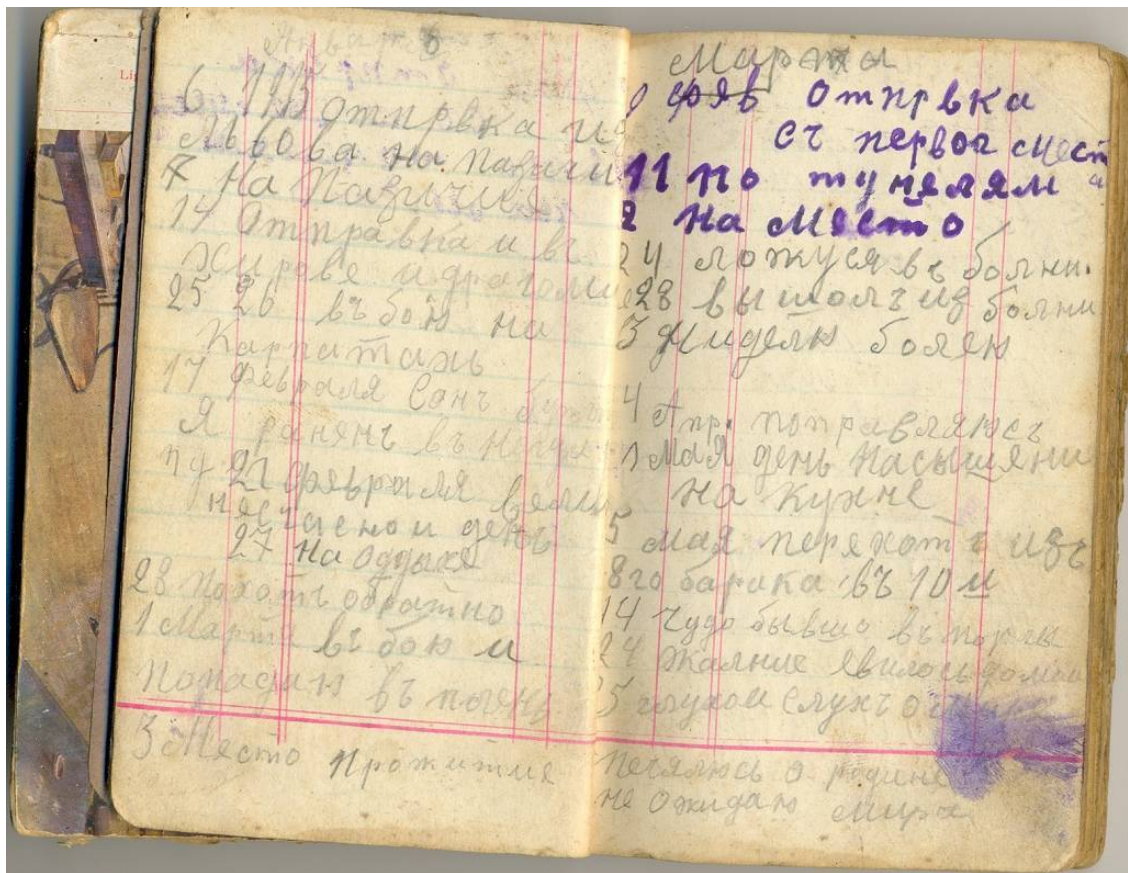 Января
6 1915 отпрвка из
Львова на пазичи
7 на Пазичия
14 Отправка и въ
Жирове и драгоми
25 26 въ бою на
Карпатахъ
17 февраля Сонъ
Я ранянъ въ
21 февраля
несчасной день
27 на оддыхе
28 походъ обратно
1 Марта въ бою и
попадаю въ плень
3 Место прожития
Марта
фяв отпрвка
съ первог места
11 по тунелям
2 на место
24 ложуся въ болни.
28 вышолъ из болни
3 нидели болен
4 Апр. поправляюсъ
1 мая день насыщени
на кухне
5 мая перяхотъ изъ
8го барака въ 10 м
14 чудо бывшо въ
24 жалние явилось домои
25 глухой слухъ о
печялюсь о родине
не ожидаю мира